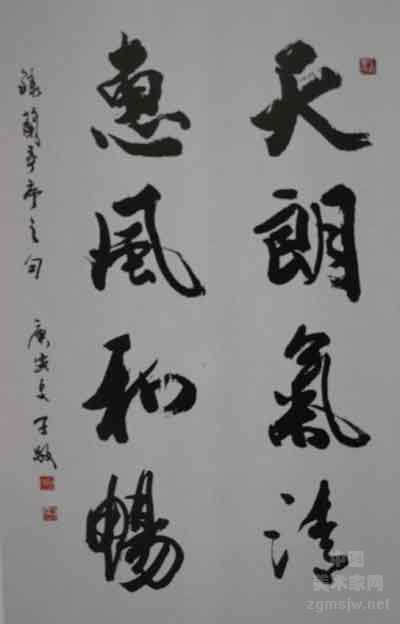 天朗氣清
惠風和暢
錄蘭亭序之句 庚寅夏 王敏
中国
美术家网
zgmsjw.net